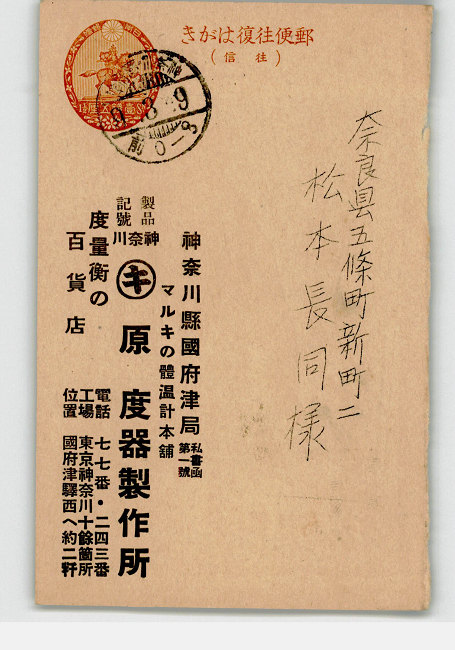 郵便往復はがき
(往信)
奈良県五條町新町二
松本長同様
神奈川縣國府津局 私書函第一號
マルキの體溫計本舗
製品記號
神奈川
キ
原度器製作所
度量衡の
百貨店
電話 七七番・二四三番
工場 東京神奈川十餘箇所
位置 國府津驛西へ約二粁
9.8.9
前0-8